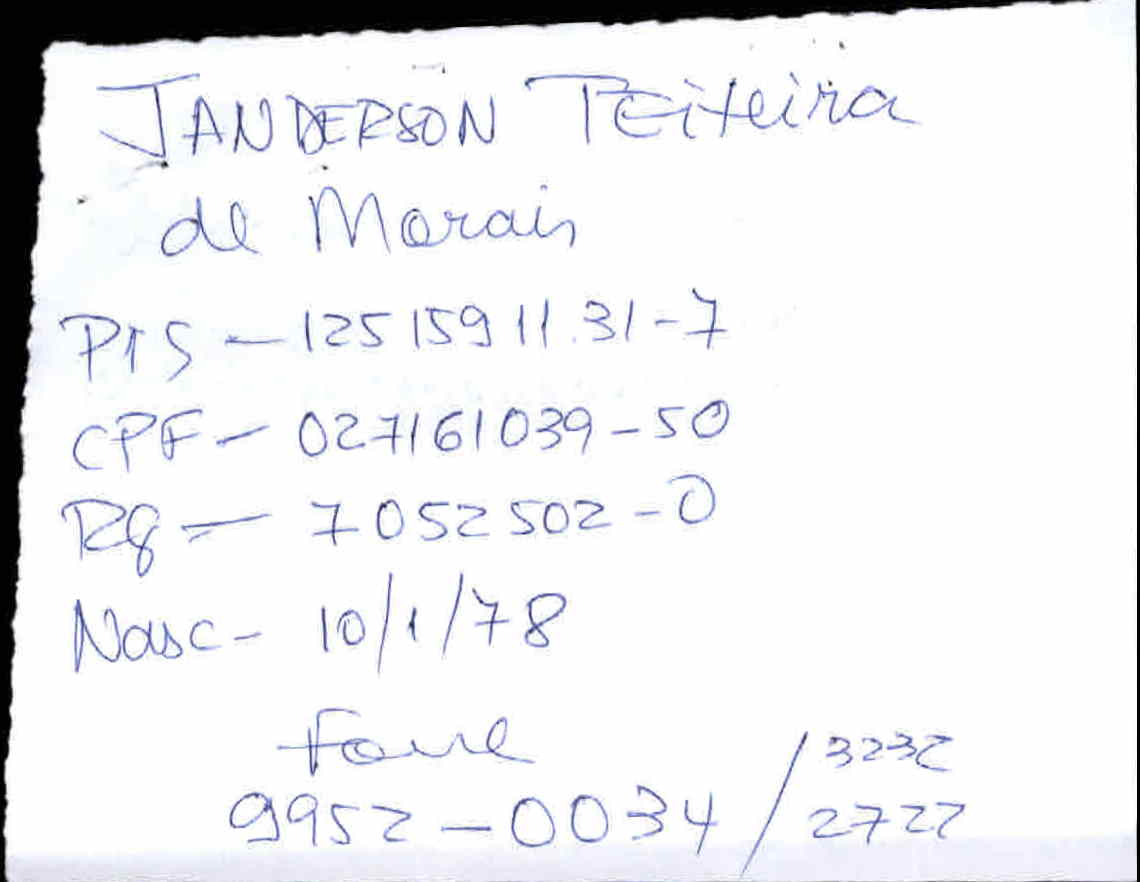 JANDERSON Teixeira
de Morais
PIS - 125 159 11.31-7
CPF - 027161039-50
Rg - 7052502-0
Nasc - 10/1/78
fone
9952-0034 / 3232
2722